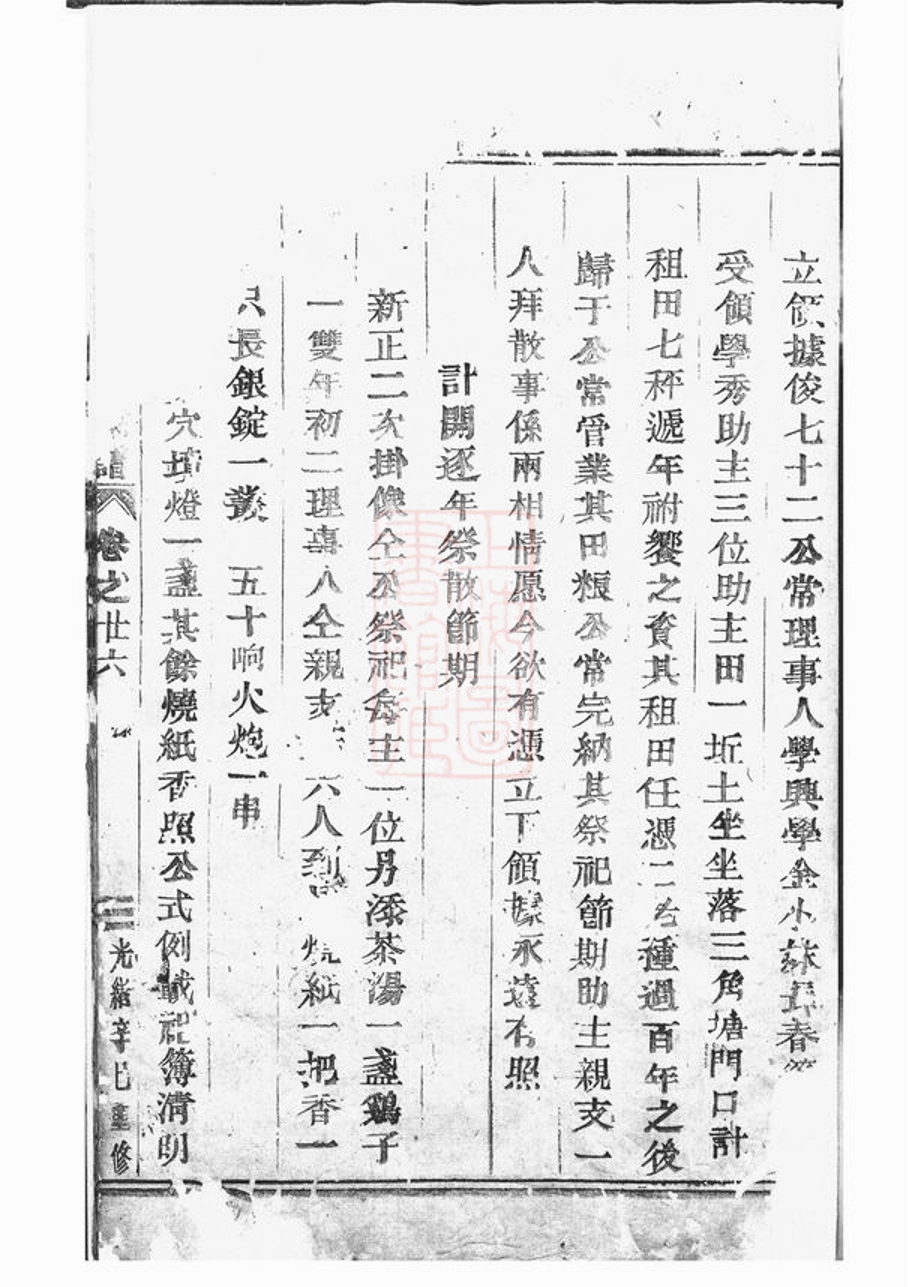 立領據俊七十二公常理事人學興學金小春
受領學秀助主三位助主田一坵土坐坐落三角塘門口計
租田七秤遞年祔饗之資其租田任憑二種過百年之後
歸于公常管業其田粮公常完納其祭祀節期助主親支一
人拜散事係兩相情愿今欲有憑立下領據永遠存照
計開逐年祭散節期
新正二次掛像仝公祭祀每主一位另添茶湯一盞鷄子
一雙年初二理事人仝親支六人到燒紙一把香一
長銀錠一叢 五十响火炮一串
穴墳燈一盞其餘燒紙香照公式例載祀簿清明
譜 卷之廿六 光緒辛巳重修